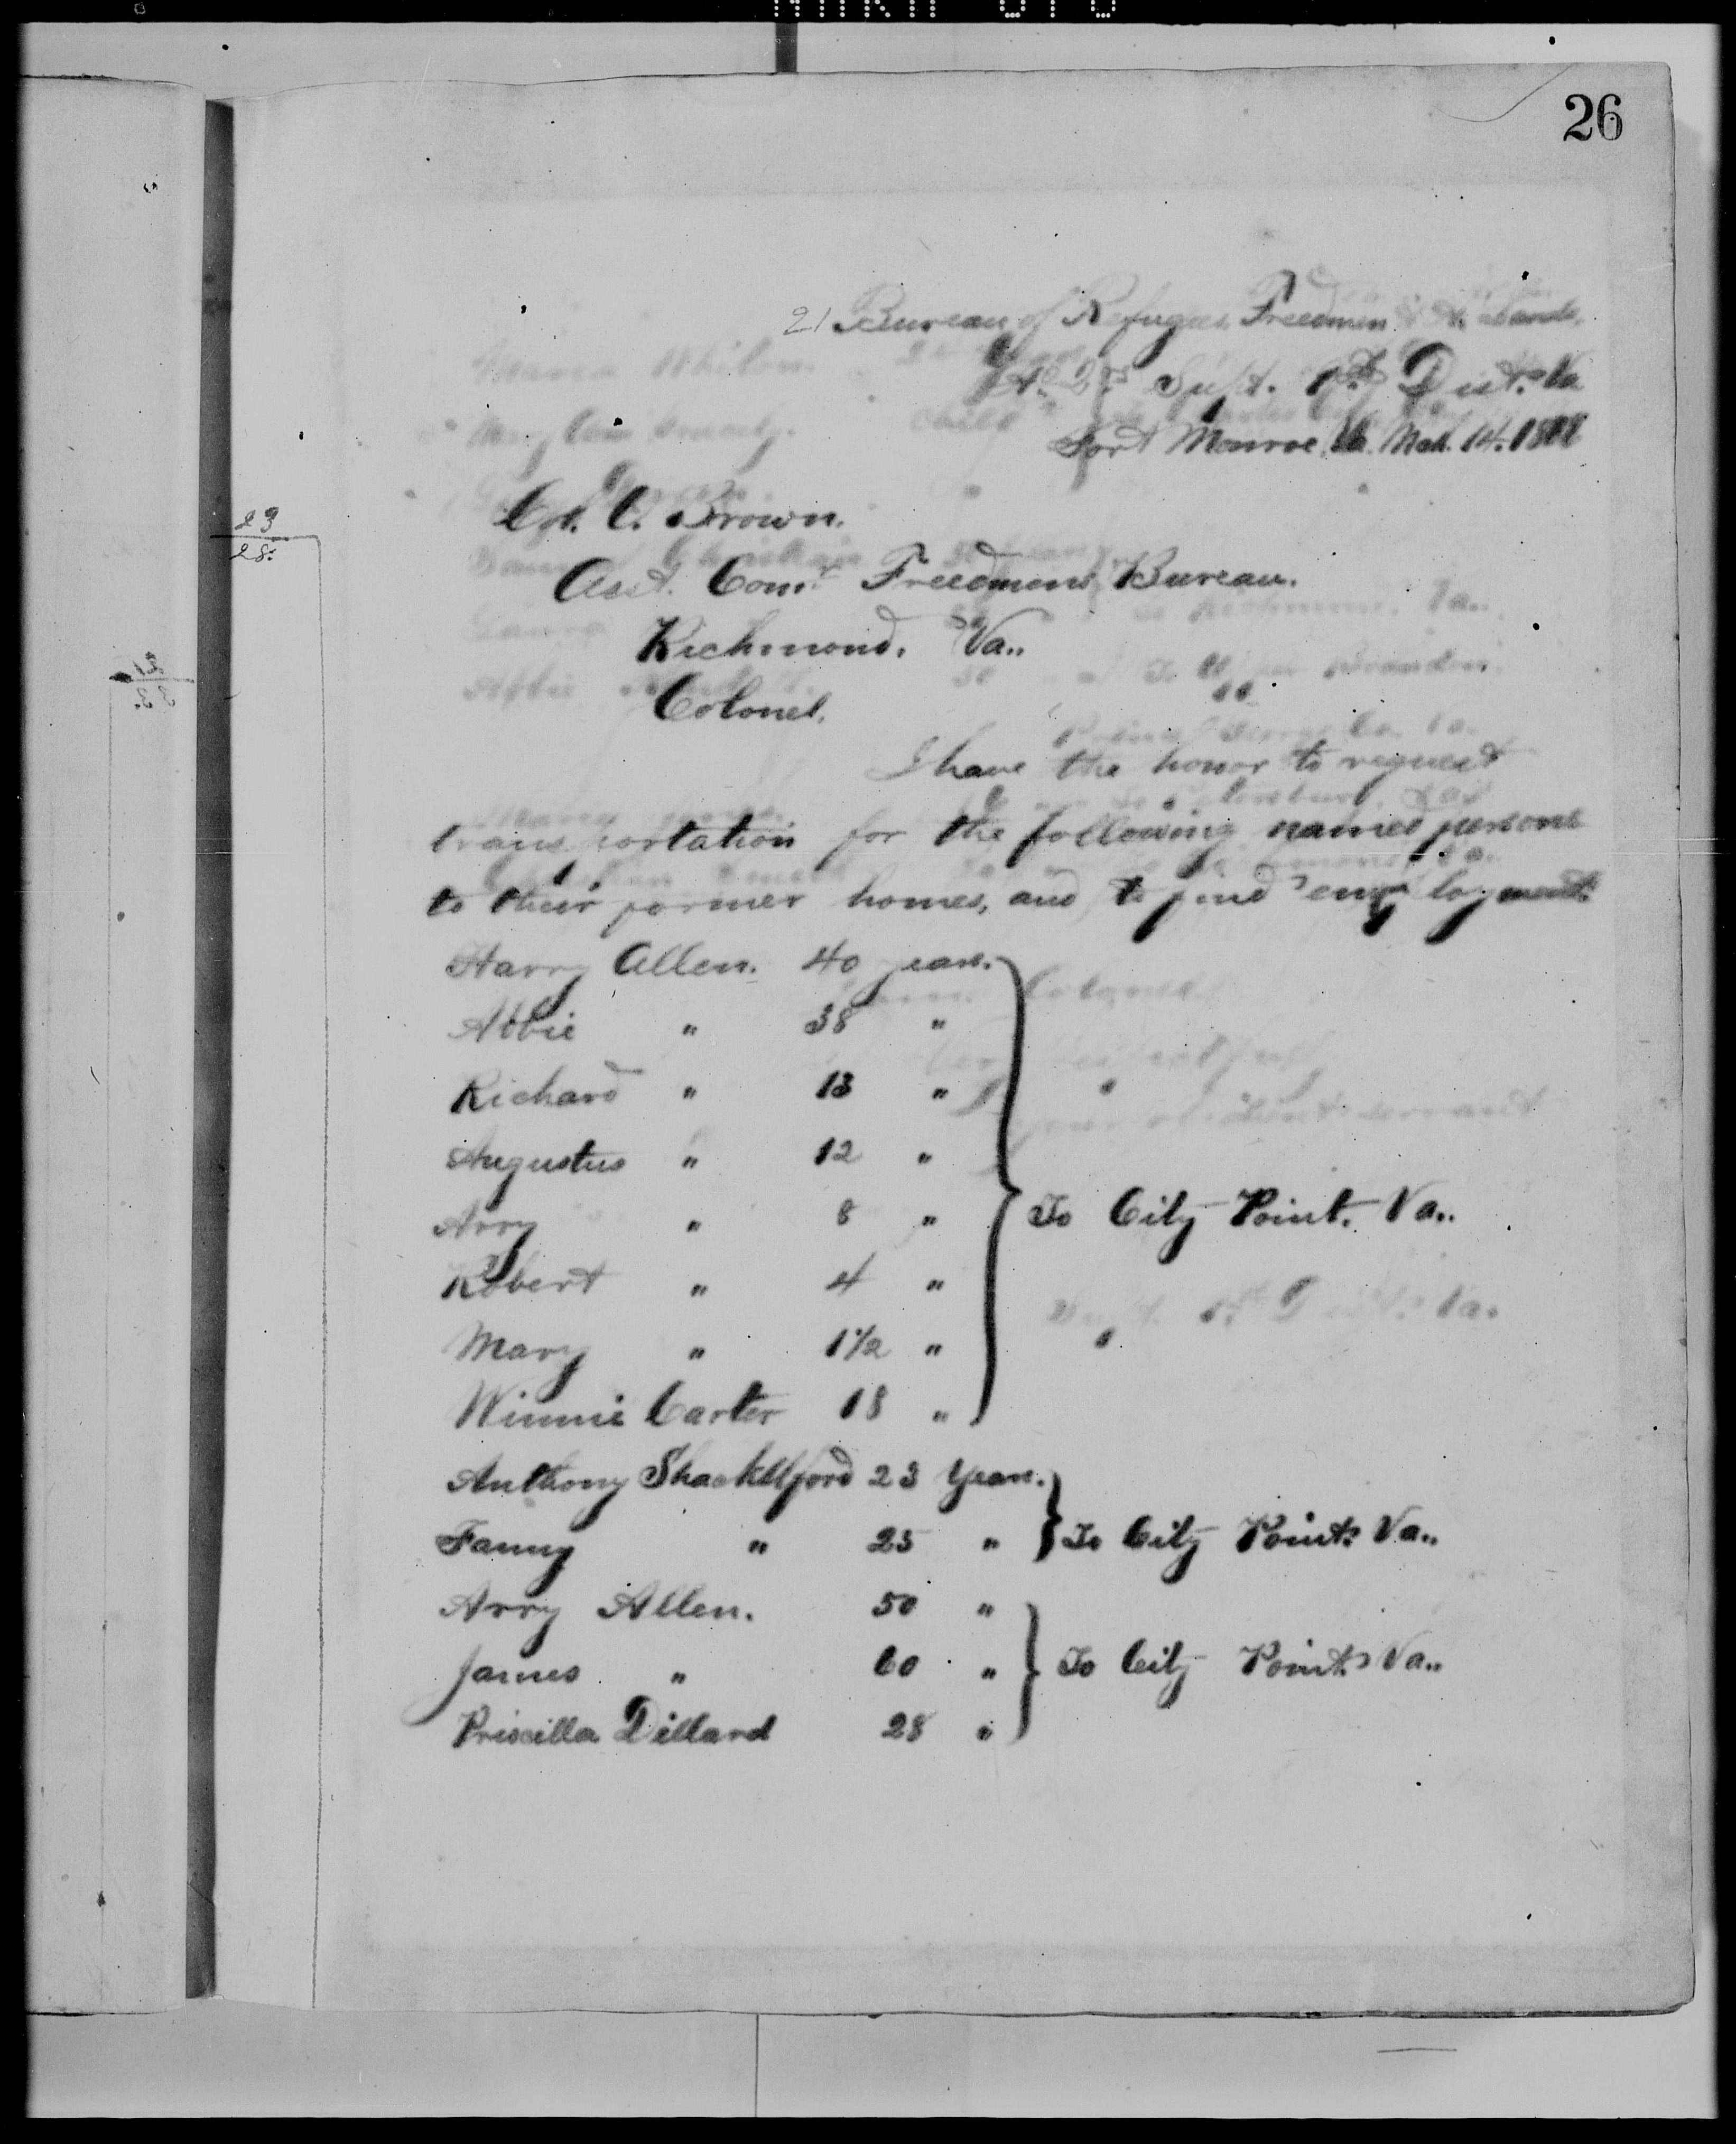 26
21 Bureau of Refugees Freedmen & A. Lands.
Hd. Qrs Supt. 1st Dist. Va
Fort Monroe, Va. Mch. 14. 
Col. O. Brown.
23
28.
Asst. Comr Freedmens Bureau.
Richmond, Va..
Colonel.
I have the honor to request
transportation for the following named persons
to their former homes, and to find employment.
Harry Allen. 40 years.
Abbie " 38 "
Richard " 13 "
Augustus " 12 "
Arry " 8 " To City Point. Va..
Robert " 4 "
Mary " 1 1/2 "
Winnie Carter 18 "
Anthony Shackelford 23 Years.
Fanny " 25 " To City Point. Va..
Arry Allen. 50 "
James " 60 " To City Point. Va..
Priscilla Dillard 28 "